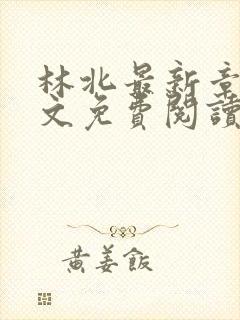 林北最新章
文免費閱讀
黃姜飯